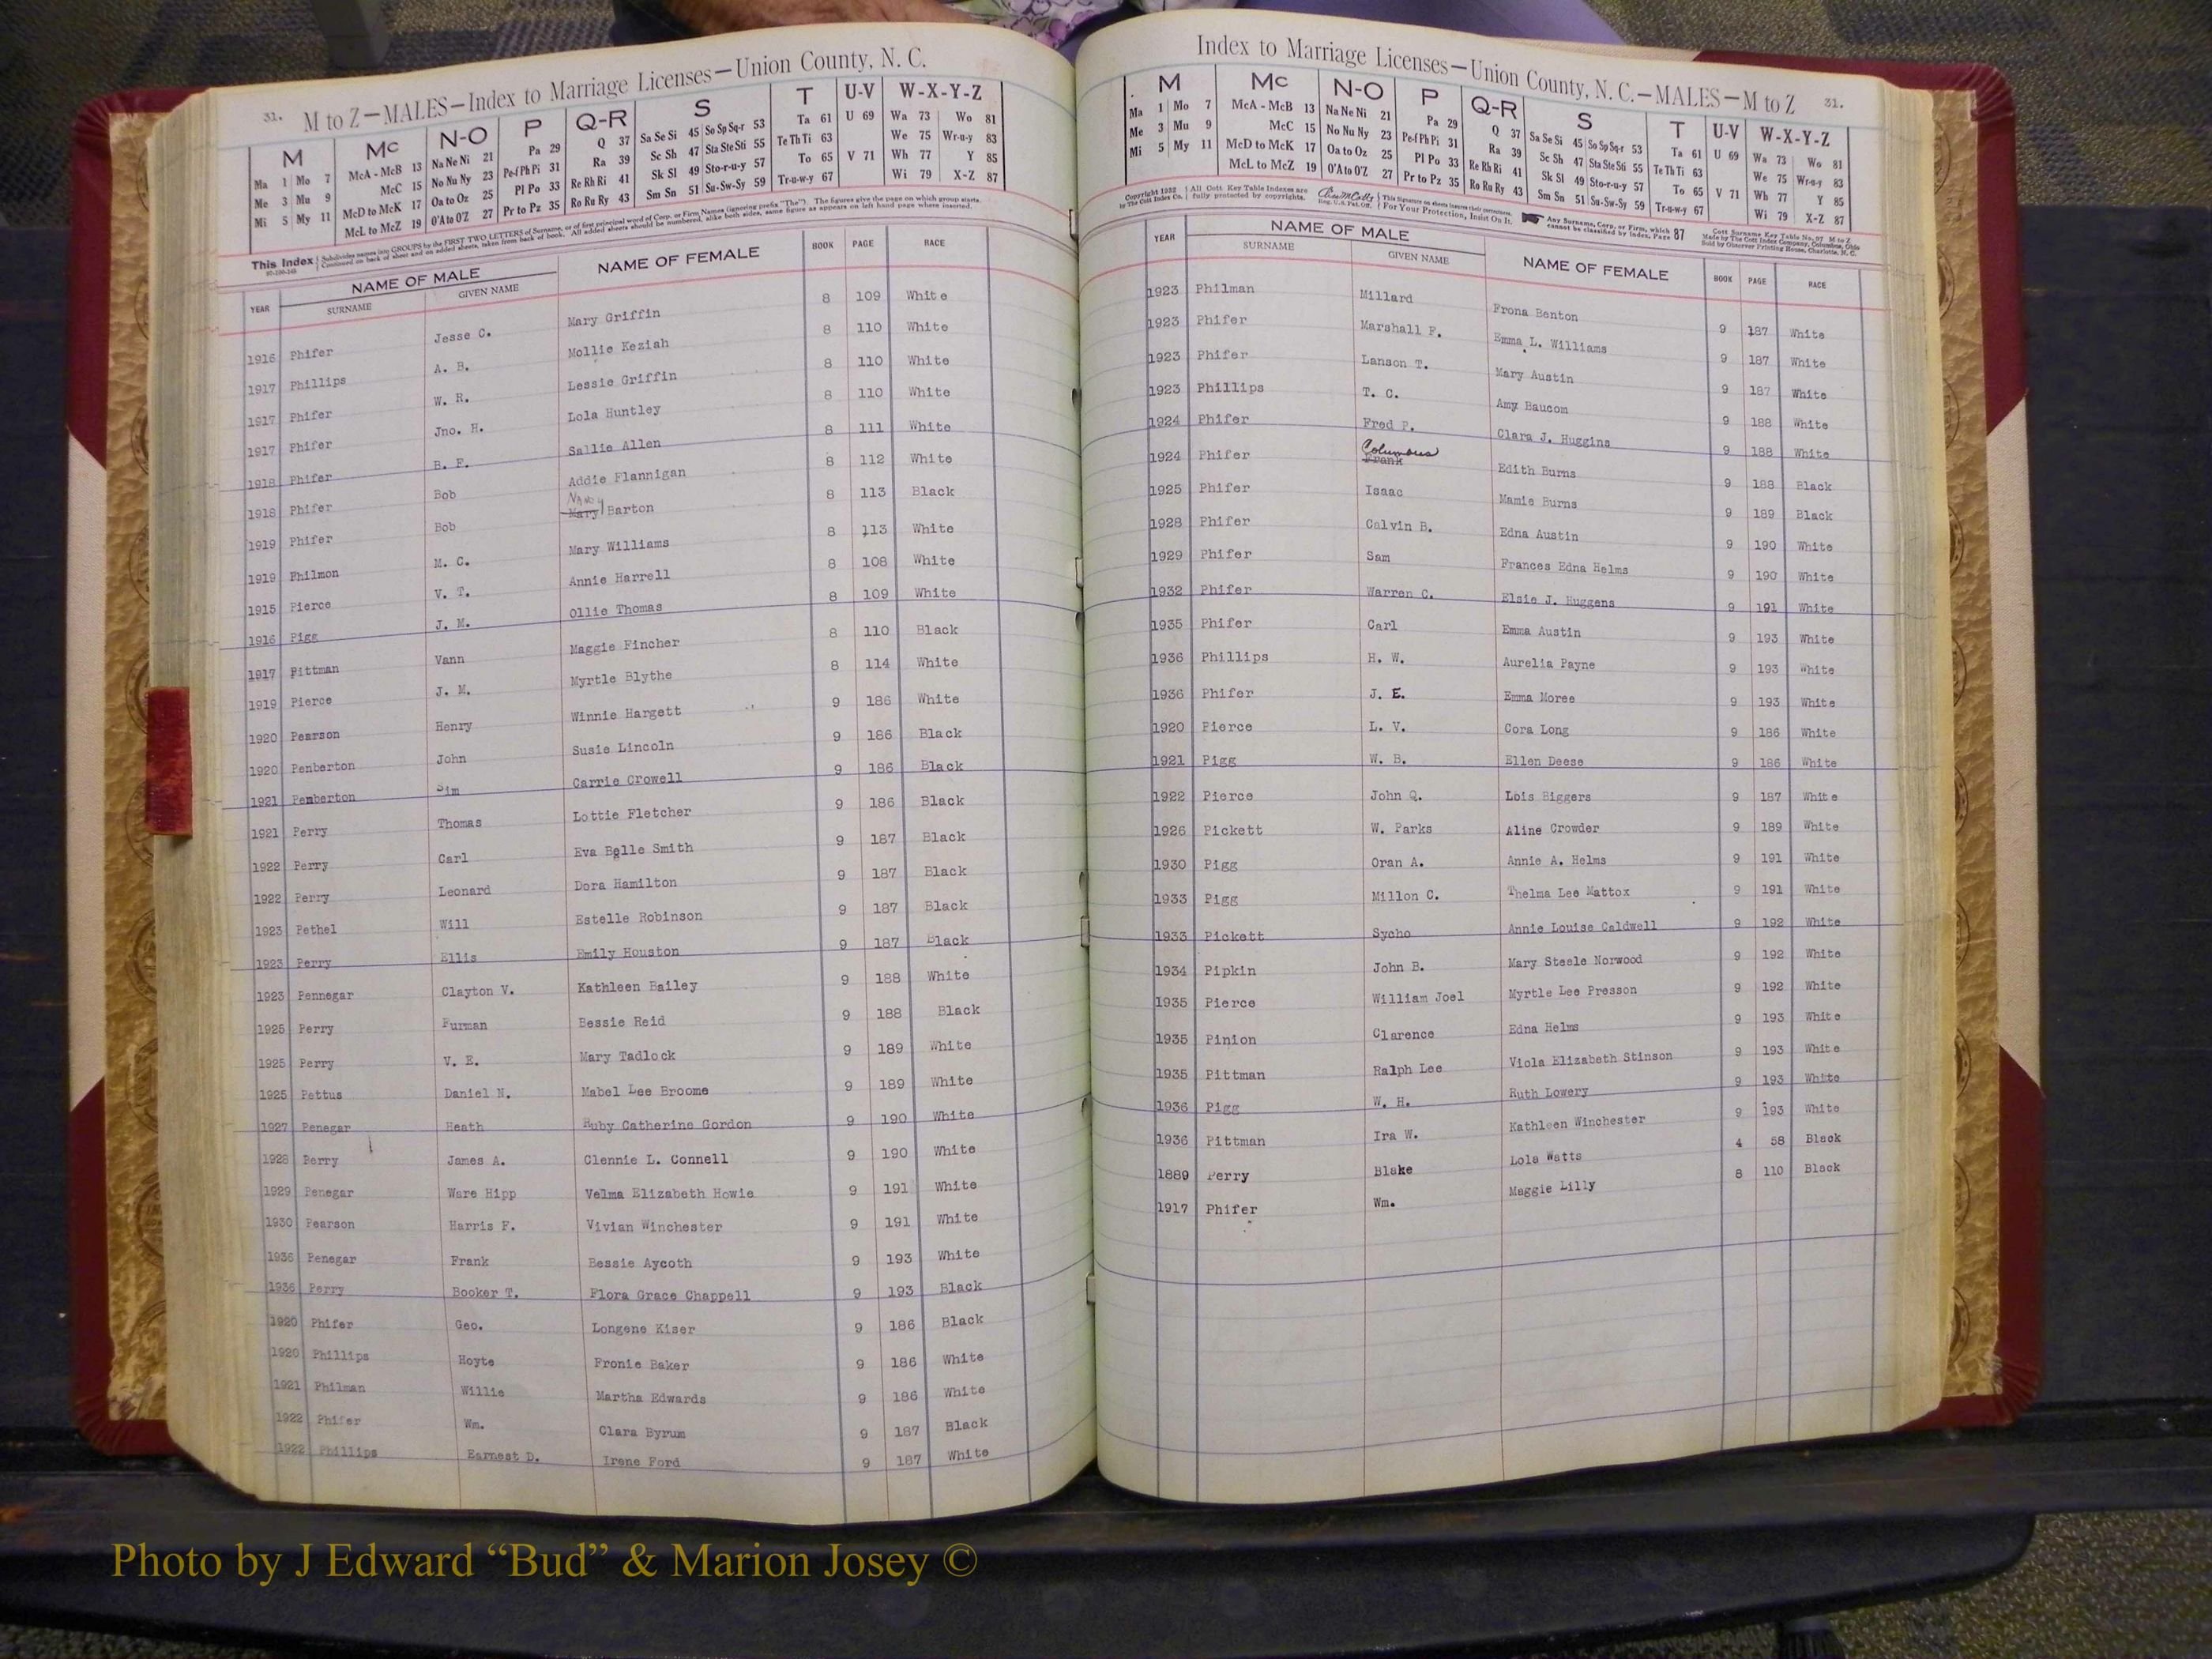 31. M to Z—MALES—Index to Marriage Licenses—Union County, N. C.
M Mc N-O P Q-R S T U-V W-X-Y-Z
Ma 1 Mo 7 McA - McB 13 Na Ne Ni 21 Pa 29 Q 37 Sa Se Si 45 So Sp Sq-r 53 Ta 61 U 69 Wa 73 Wo 81
Me 3 Mu 9 McC 15 No Nu Ny 23 Pe-f Ph Pi 31 Ra 39 Sc Sh 47 Sta Ste Sti 55 Te Th Ti 63 We 75 Wr-u-y 83
Mi 5 My 11 McD to McK 17 Oa to Oz 25 Pl Po 33 Re Rh Ri 41 Sk Sl 49 Sto-r-u-y 57 To 65 V 71 Wh 77 Y 85
McL to McZ 19 O'A to O'Z 27 Pr to Pz 35 Ro Ru Ry 43 Sm Sn 51 Su-Sw-Sy 59 Tr-u-w-y 67 Wi 79 X-Z 87
This Index Subdivides names into GROUPS by the FIRST TWO LETTERS of Surname, or of first principal word of Corp. or Firm Names (ignoring prefix "The"). The figures give the page on which group starts.
Continued on back of sheet and on added sheets, taken from back of book. All added sheets should be numbered, alike both sides, same figure as appears on left hand page where inserted.
YEAR NAME OF MALE NAME OF FEMALE BOOK PAGE RACE
SURNAME GIVEN NAME
1916 Phifer Jesse C. Mary Griffin 8 109 White
1917 Phillips A. B. Mollie Keziah 8 110 White
1917 Phifer W. R. Lessie Griffin 8 110 White
1917 Phifer Jno. H. Lola Huntley 8 110 White
1918 Phifer B. F. Sallie Allen 8 111 White
1918 Phifer Bob Addie Flannigan 8 112 White
Nancy
1919 Phifer Bob Mary Barton 8 113 Black
1919 Philmon M. C. Mary Williams 8 113 White
1915 Pierce V. T. Annie Harrell 8 108 White
1916 Pigg J. M. Ollie Thomas 8 109 White
1917 Pittman Vann Maggie Fincher 8 110 Black
1919 Pierce J. M. Myrtle Blythe 8 114 White
1920 Pearson Henry Winnie Hargett 9 186 White
1920 Penberton John Susie Lincoln 9 186 Black
1921 Pemberton Sim Carrie Crowell 9 186 Black
1921 Perry Thomas Lottie Fletcher 9 186 Black
1922 Perry Carl Eva Belle Smith 9 187 Black
1922 Perry Leonard Dora Hamilton 9 187 Black
1923 Pethel Will Estelle Robinson 9 187 Black
1923 Perry Ellis Emily Houston 9 187 Black
1923 Pennegar Clayton V. Kathleen Bailey 9 188 White
1925 Perry Furman Bessie Reid 9 188 Black
1925 Perry V. E. Mary Tadlock 9 189 White
1925 Pettus Daniel N. Mabel Lee Broome 9 189 White
1927 Penegar Heath Ruby Catherine Gordon 9 190 White
1928 Perry James A. Clennie L. Connell 9 190 White
1929 Penegar Ware Hipp Velma Elizabeth Howie 9 191 White
1930 Pearson Harris F. Vivian Winchester 9 191 White
1936 Penegar Frank Bessie Aycoth 9 193 White
1936 Perry Booker T. Flora Grace Chappell 9 193 Black
1920 Phifer Geo. Longene Kiser 9 186 Black
1920 Phillips Hoyte Fronie Baker 9 186 White
1921 Philman Willie Martha Edwards 9 186 White
1922 Phifer Wm. Clara Byrum 9 187 Black
1922 Phillips Earnest D. Irene Ford 9 187 White
Index to Marriage Licenses—Union County, N. C.—MALES—M to Z 31.
M Mc N-O P Q-R S T U-V W-X-Y-Z
Ma 1 Mo 7 McA - McB 13 Na Ne Ni 21 Pa 29 Q 37 Sa Se Si 45 So Sp Sq-r 53 Ta 61 U 69 Wa 73 Wo 81
Me 3 Mu 9 McC 15 No Nu Ny 23 Pe-f Ph Pi 31 Ra 39 Sc Sh 47 Sta Ste Sti 55 Te Th Ti 63 We 75 Wr-u-y 83
Mi 5 My 11 McD to McK 17 Oa to Oz 25 Pl Po 33 Re Rh Ri 41 Sk Sl 49 Sto-r-u-y 57 To 65 V 71 Wh 77 Y 85
McL to McZ 19 O'A to O'Z 27 Pr to Pz 35 Ro Ru Ry 43 Sm Sn 51 Su-Sw-Sy 59 Tr-u-w-y 67 Wi 79 X-Z 87
Copyright 1932 by The Cott Index Co. All Cott Key Table Indexes are fully protected by copyrights. For Your Protection, Insist On It. Any Surname, Corp. or Firm, which cannot be classified by Index, Page 87
YEAR NAME OF MALE NAME OF FEMALE BOOK PAGE RACE
SURNAME GIVEN NAME
1923 Philman Millard Frona Benton 9 187 White
1923 Phifer Marshall P. Emma L. Williams 9 187 White
1923 Phifer Lanson T. Mary Austin 9 187 White
1923 Phillips T. C. Amy Baucom 9 188 White
1924 Phifer Fred P. Clara J. Huggins 9 188 White
Columbus
1924 Phifer Frank Edith Burns 9 188 Black
1925 Phifer Isaac Mamie Burns 9 189 Black
1928 Phifer Calvin B. Edna Austin 9 190 White
1929 Phifer Sam Frances Edna Helms 9 190 White
1932 Phifer Warren C. Elsie J. Huggens 9 191 White
1935 Phifer Carl Emma Austin 9 193 White
1936 Phillips H. W. Aurelia Payne 9 193 White
1936 Phifer J. E. Emma Moree 9 193 White
1920 Pierce L. V. Cora Long 9 186 White
1921 Pigg W. B. Ellen Deese 9 186 White
1922 Pierce John Q. Lois Biggers 9 187 White
1926 Pickett W. Parks Aline Crowder 9 189 White
1930 Pigg Oran A. Annie A. Helms 9 191 White
1933 Pigg Millon C. Thelma Lee Mattox 9 191 White
1933 Pickett Sycho Annie Louise Caldwell 9 192 White
1934 Pipkin John B. Mary Steele Norwood 9 192 White
1935 Pierce William Joel Myrtle Lee Presson 9 192 White
1935 Pinion Clarence Edna Helms 9 193 White
1935 Pittman Ralph Lee Viola Elizabeth Stinson 9 193 White
1936 Pigg W. H. Ruth Lowery 9 193 White
1936 Pittman Ira W. Kathleen Winchester 9 193 White
1889 Perry Blake Lola Watts 4 58 Black
1917 Phifer Wm. Maggie Lilly 8 110 Black
Photo by J Edward “Bud” & Marion Josey ©